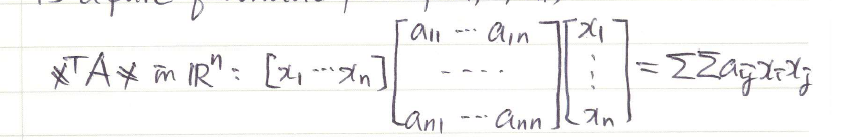 𝕩ᵀA𝕩 in ℝⁿ: [x₁ ⋯ xₙ] [a₁₁ ⋯ a₁ₙ ; - - - - ; aₙ₁ ⋯ aₙₙ] [x₁ ⋮ xₙ] = ΣΣaᵢⱼxᵢxⱼ